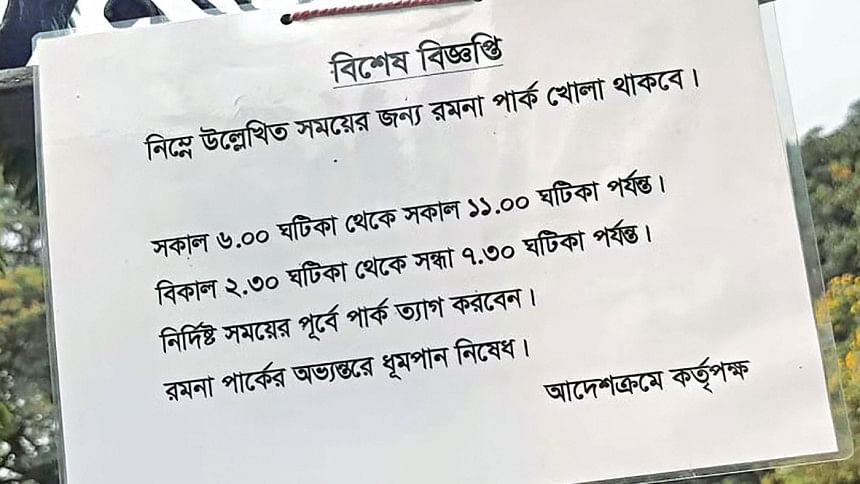 বিশেষ বিজ্ঞপ্তি
নিম্নে উল্লেখিত সময়ের জন্য রমনা পার্ক খোলা থাকবে।
সকাল ৬.০০ ঘটিকা থেকে সকাল ১১.০০ ঘটিকা পর্যন্ত।
বিকাল ২.৩০ ঘটিকা থেকে সন্ধা ৭.৩০ ঘটিকা পর্যন্ত।
নির্দিষ্ট সময়ের পূর্বে পার্ক ত্যাগ করবেন।
রমনা পার্কের অভ্যন্তরে ধূমপান নিষেধ।
আদেশক্রমে কর্তৃপক্ষ